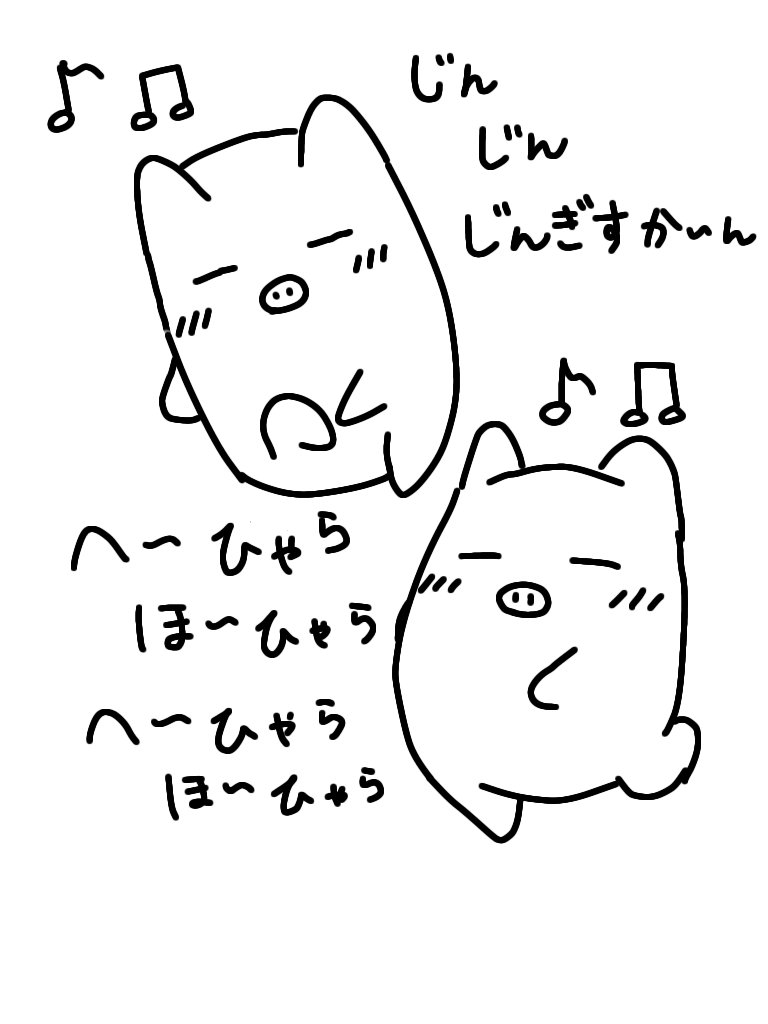 じん
じん
じんぎすかーん
へ〜ひゃら
ほ〜ひゃら
へ〜ひゃら
ほ〜ひゃら